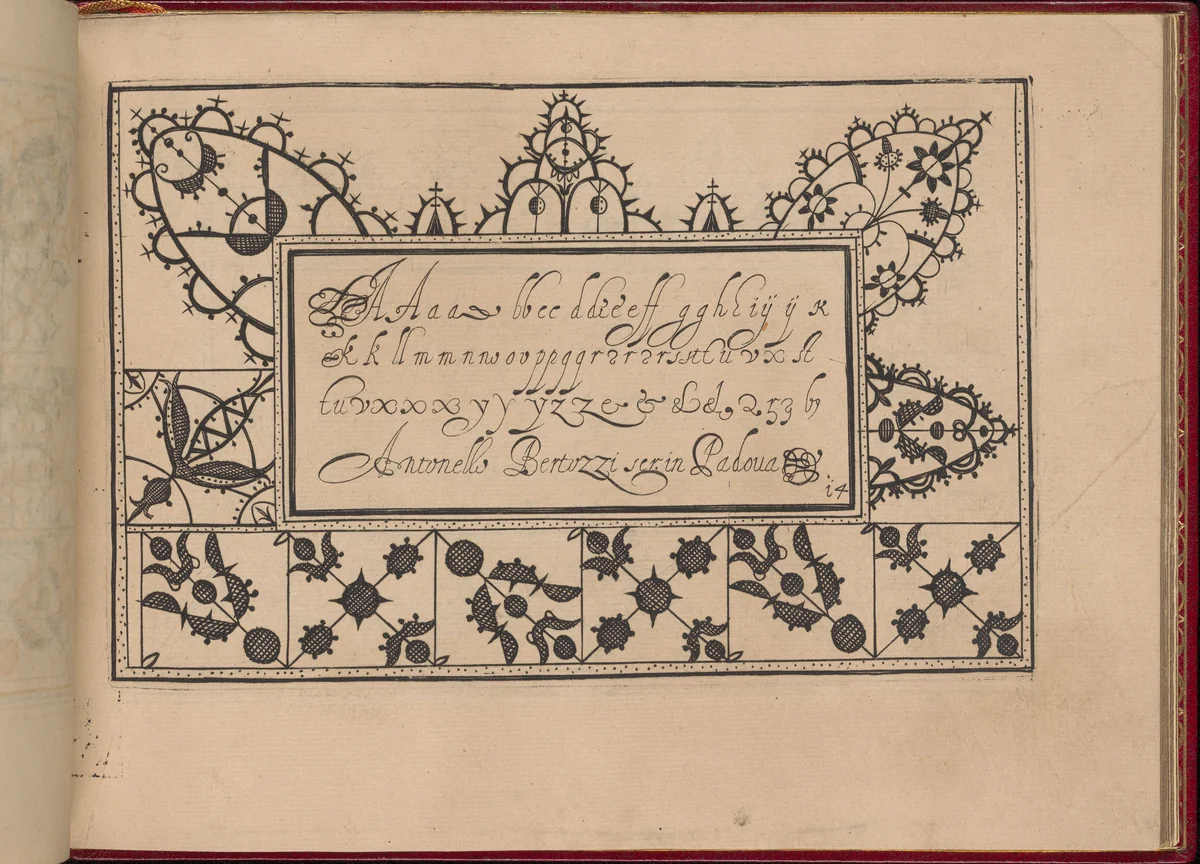 A A A a a bb cc d d d e e ff g g h h i ij ij k
& k k ll m m n n w o v p p p q q r 2 r 2 r s st t u v x st
t u v x x x x y y y z z & & & & 2 5 3 by
Antonello Bertozzi ser. in Padoua
i4